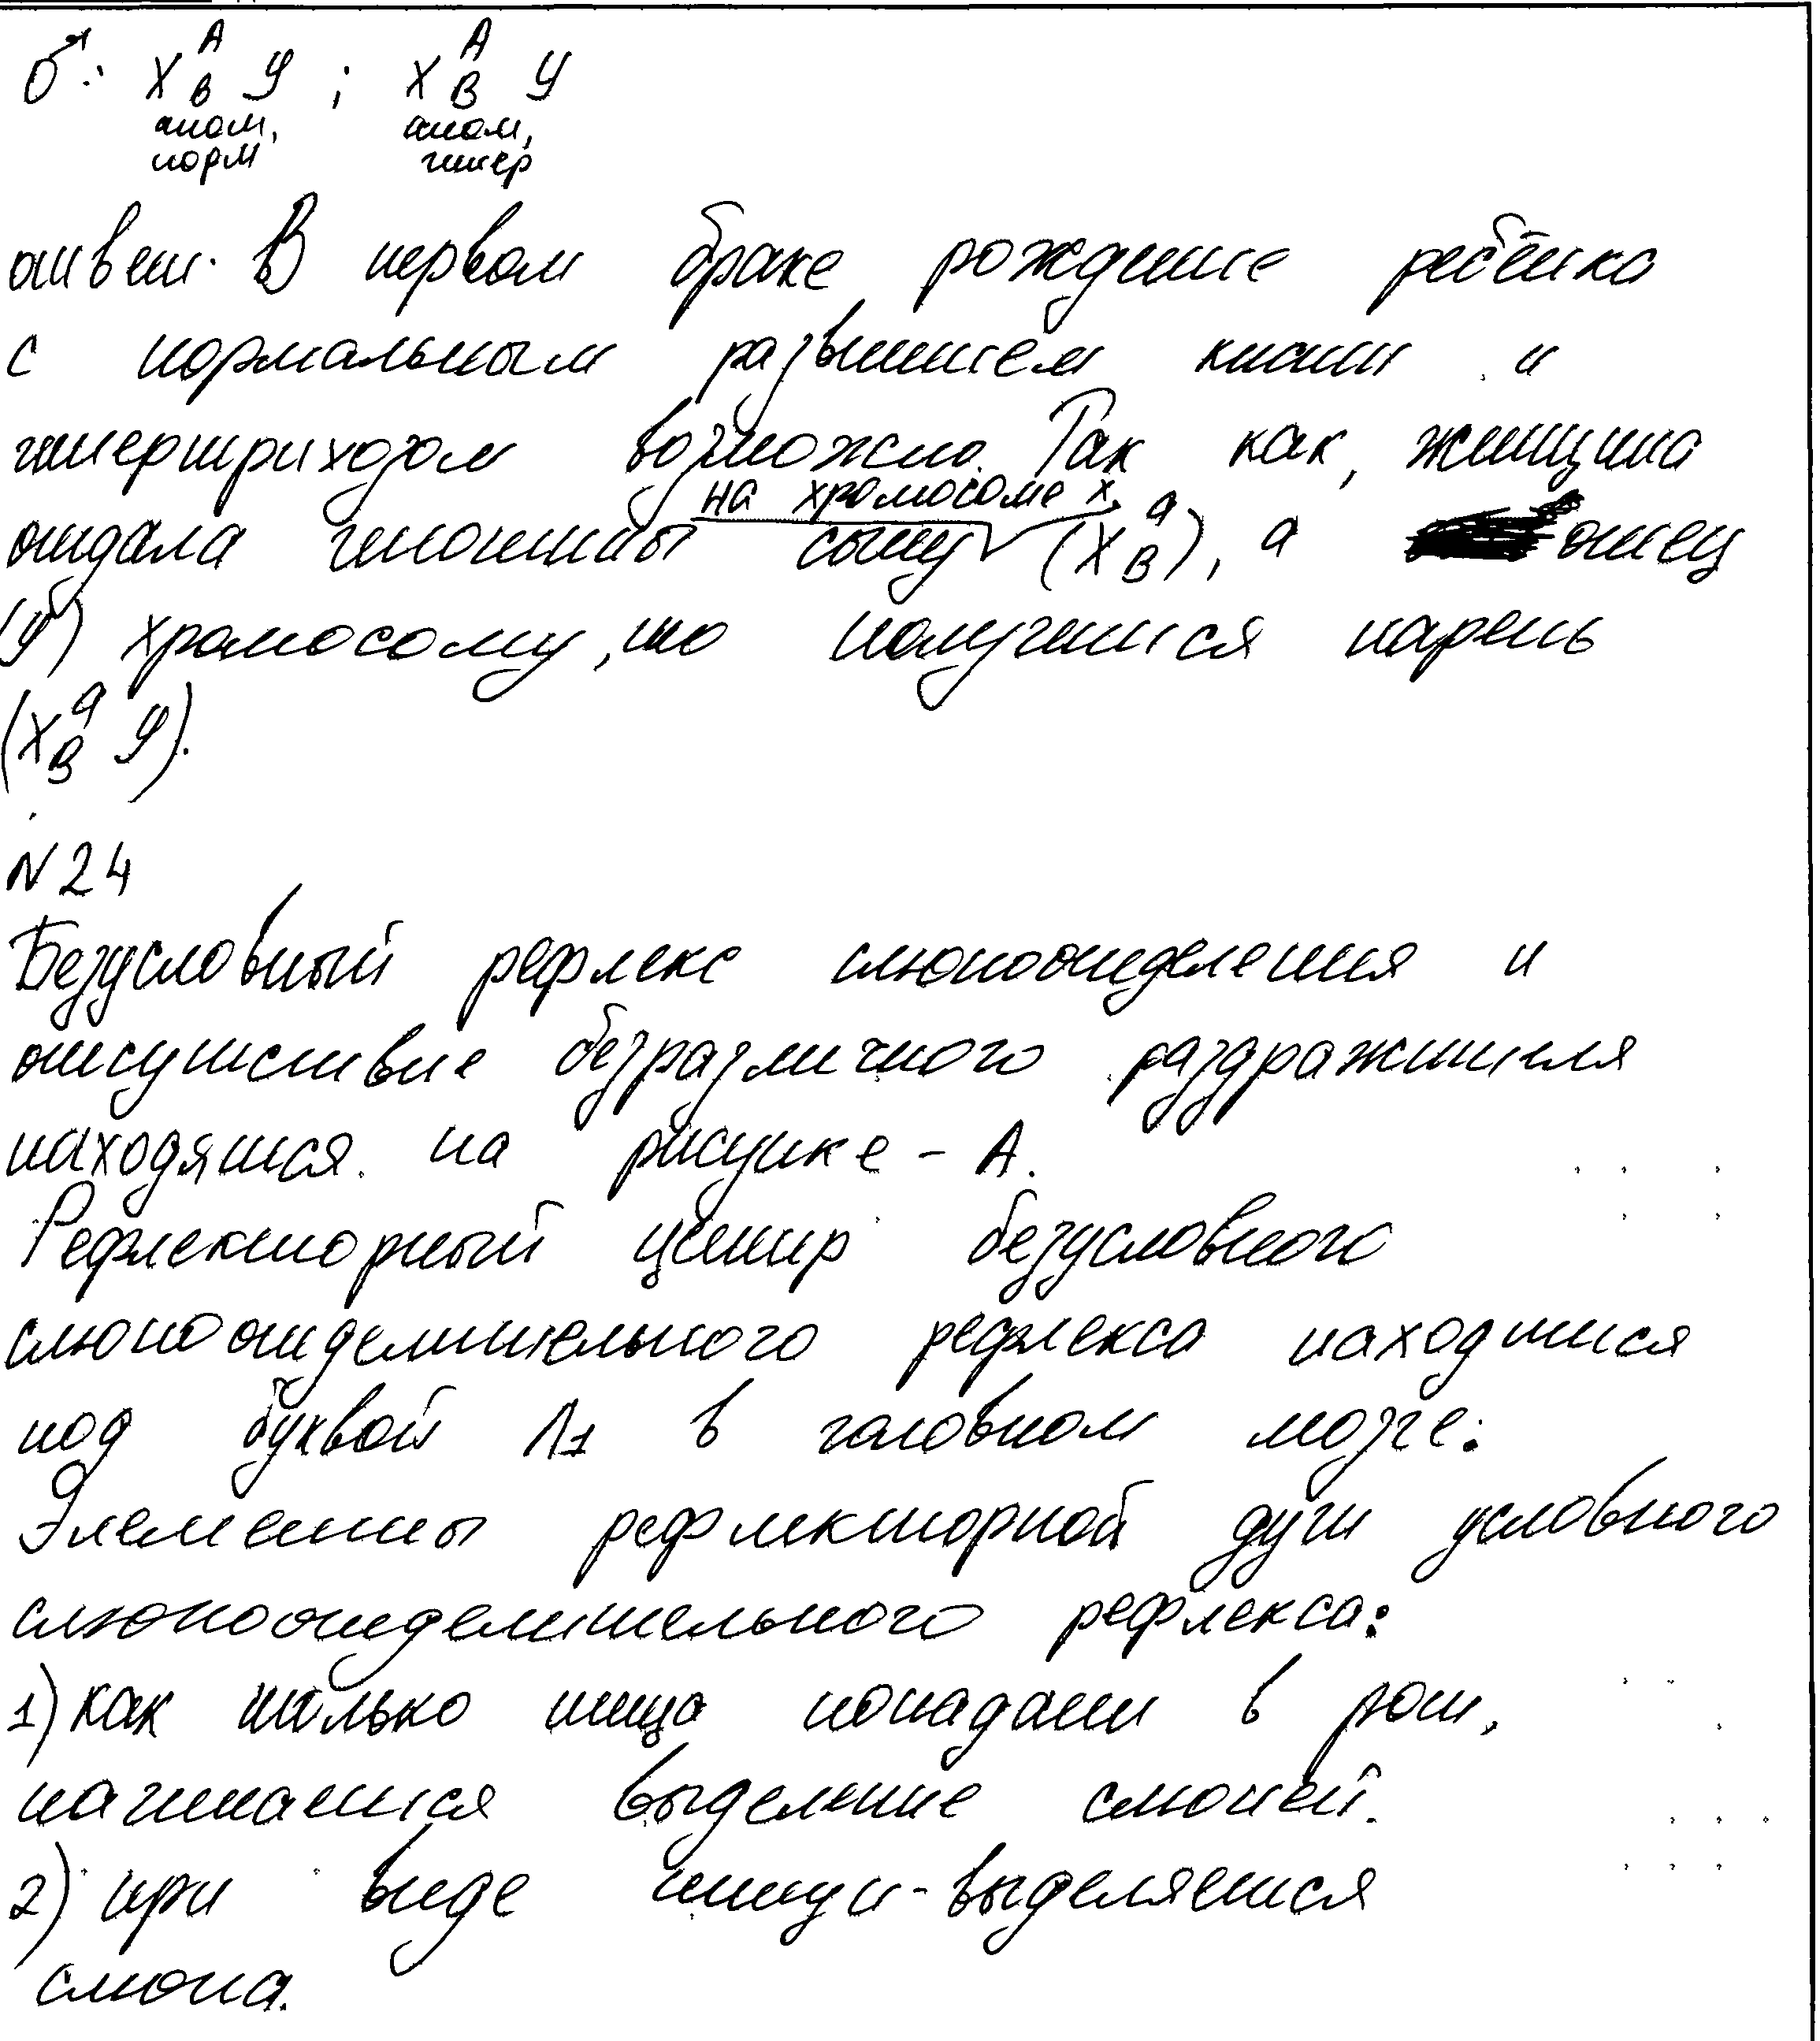 ♂: X^A_в У ; X^A_B У
аном, аном,
норм гипер
ответ. В первом браке рождение ребёнка
с нормальным развитием кисти и
гипертрихозом возможно. Так как, женщина
на хромосоме х
отдала генотипы сыну (X^a_B), а отец
(У) хромосому, то получится парень
(X^a_B У).
N24
Безусловный рефлекс слюноотделения и
отсутствие безразличного раздражителя
находятся на рисунке - А.
Рефлекторный центр безусловного
слюноотделительного рефлекса находится
под буквой Л1 в головном мозге.
Элементы рефлекторной дуги условного
слюноотделительного рефлекса:
1) как только пища попадает в рот,
начинается выделение слюней.
2) при виде пищи - выделяется
слюна.